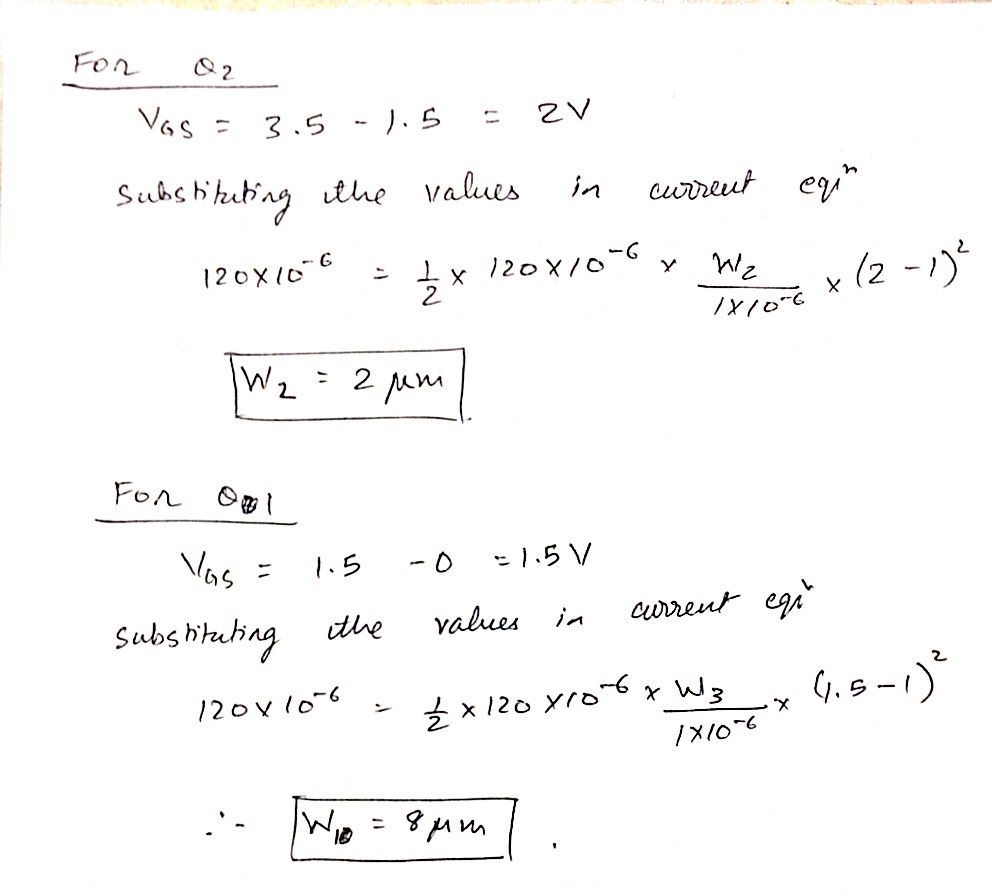 For Q2
VGS = 3.5 - 1.5 = 2V
Substituting the values in current eqⁿ
120×10⁻⁶ = 1/2 × 120×10⁻⁶ × W₂/1×10⁻⁶ × (2-1)²
W₂ = 2 μm
For Q1
VGS = 1.5 - 0 = 1.5V
Substituting the values in current eqⁿ
120×10⁻⁶ = 1/2 × 120×10⁻⁶ × W₃/1×10⁻⁶ × (1.5-1)²
∴ W₁ = 8 μm